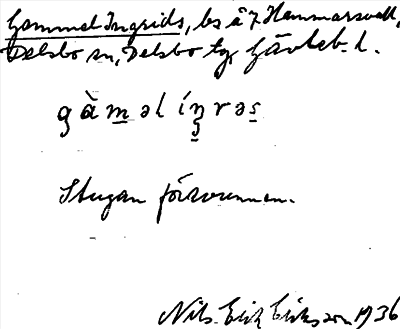 Gammel Ingrids, bs å 7 Hammarsvall,
Delsbo sn, Delsbo tg, Gävleb. l.
gàməl íŋrəs
Stugan försvunnen.
Nils Erik Eriksson 1936